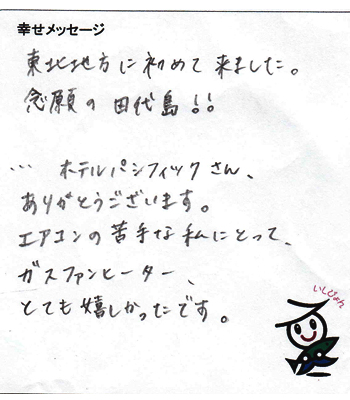 幸せメッセージ
東北地方に初めて来ました。
念願の田代島!!
… ホテルパシフィックさん、
ありがとうございます。
エアコンの苦手な私にとって、
ガスファンヒーター、
とても嬉しかったです。
いしぴょん